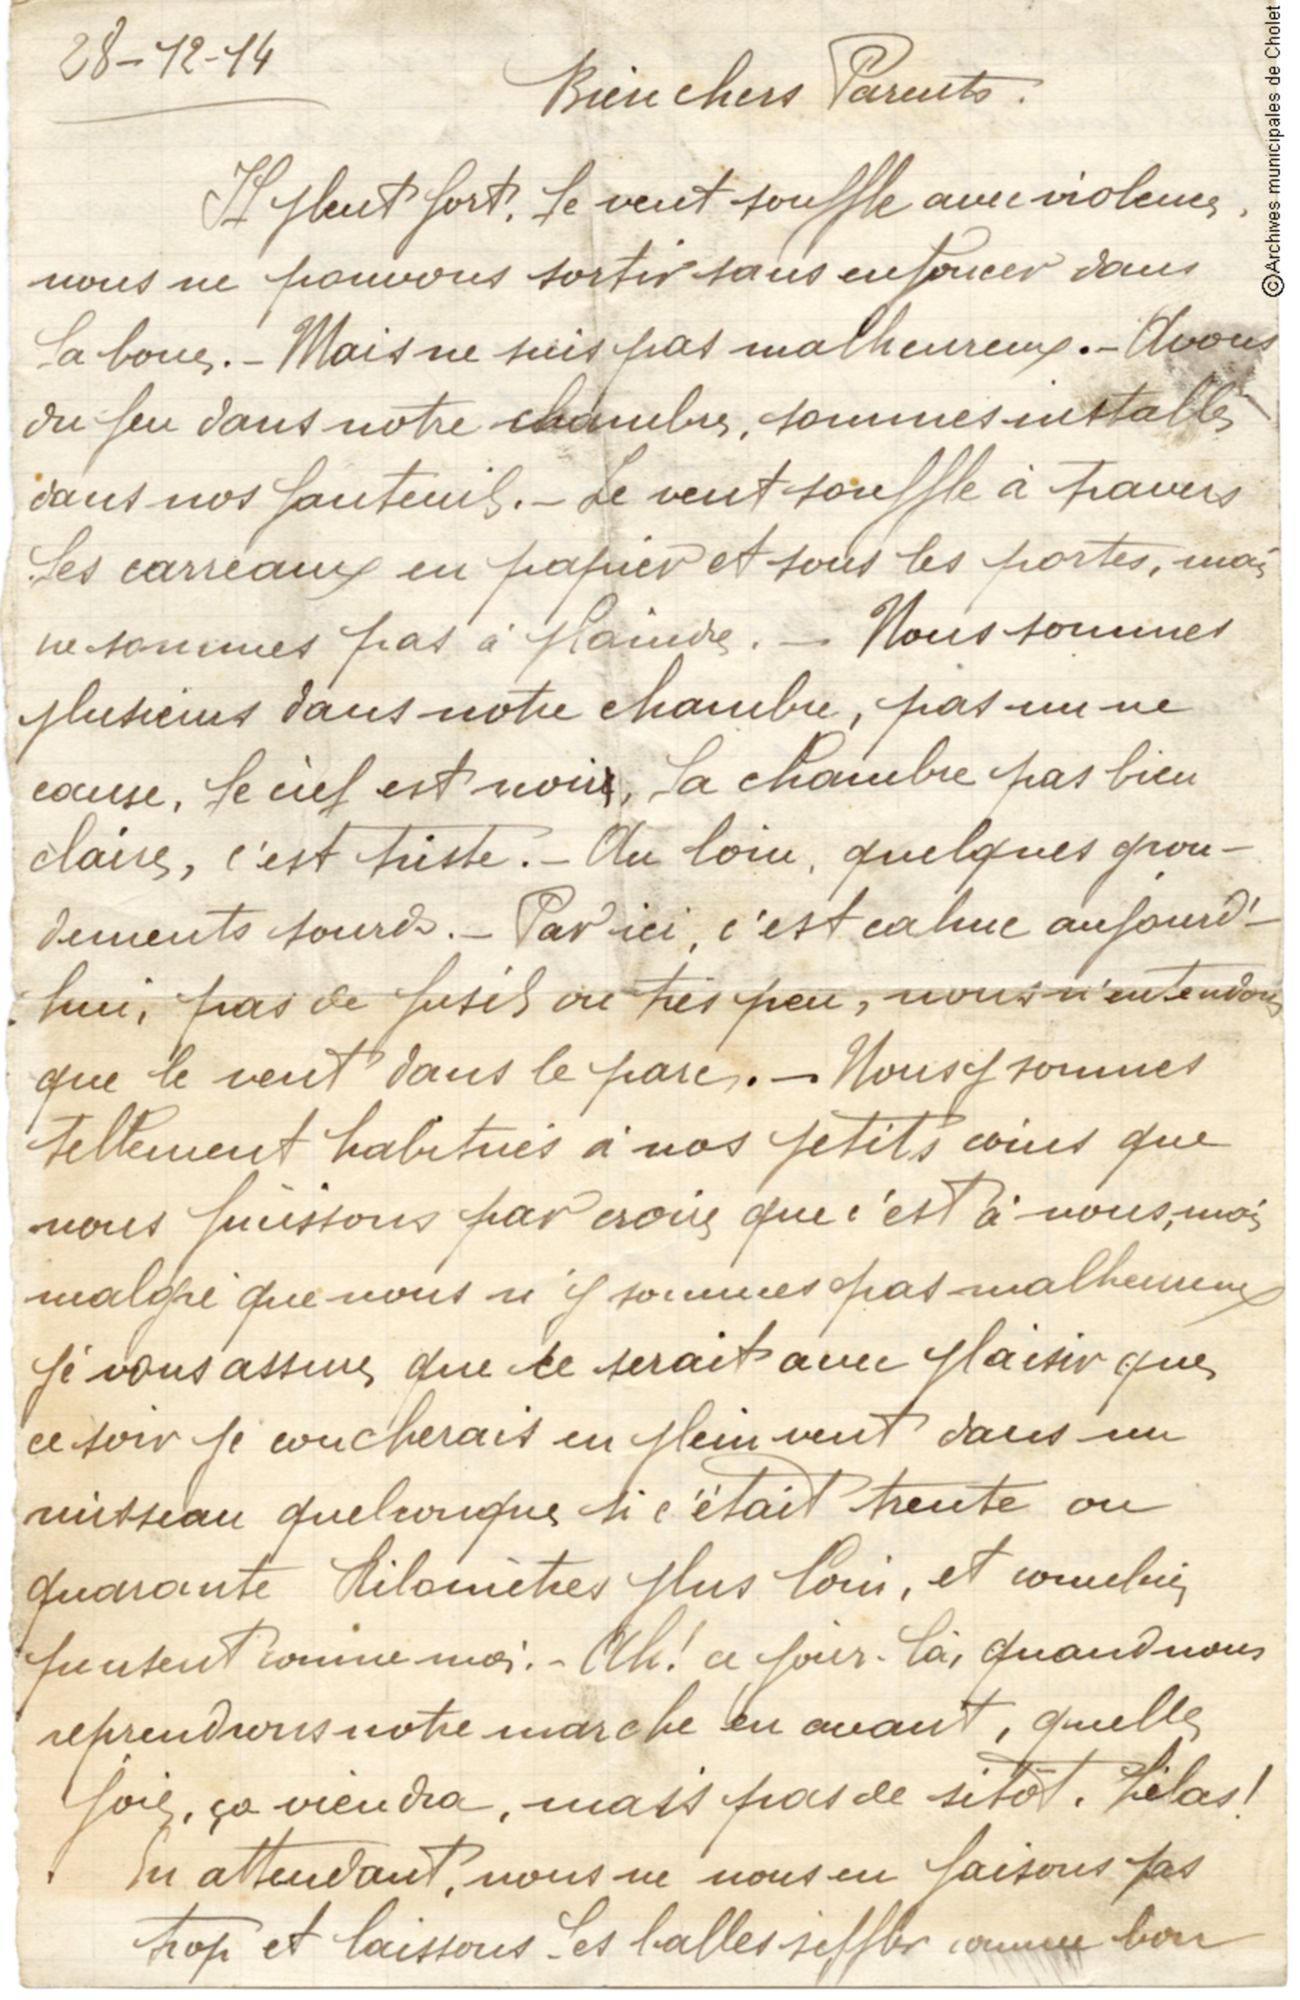 28-12-14
Bien chers Parents.
Il pleut fort, le vent souffle avec violence,
nous ne pouvons sortir sans enfoncer dans
la boue. - Mais ne suis pas malheureux. - Avons
du feu dans notre chambre, sommes installés
dans nos fauteuils. - Le vent souffle à travers
les carreaux en papier et sous les portes, mais
ne sommes pas à plaindre. - Nous sommes
plusieurs dans notre chambre, pas un ne
cause, le ciel est noir, la chambre pas bien
claire, c'est triste. - Au loin, quelques gron-
dements sourds. - Par ici, c'est calme aujourd'-
hui, pas de fusils ou très peu, nous n'entendons
que le vent dans le parc. - Nous y sommes
tellement habitués à nos petits coins que
nous finissons par croire que c'est à nous, mais
malgré que nous n'y sommes pas malheureux
je vous assure que ce serait avec plaisir que
ce soir je coucherais en plein vent dans un
ruisseau quelconque si c'était trente ou
quarante kilomètres plus loin, et combien
pensent comme moi. - Ah! ce jour-là, quand nous
reprendrons notre marche en avant, quelle
joie, ça viendra, mais pas de sitôt, hélas!
En attendant, nous ne nous en faisons pas
trop et laissons les balles siffler comme bon
©Archives municipales de Cholet